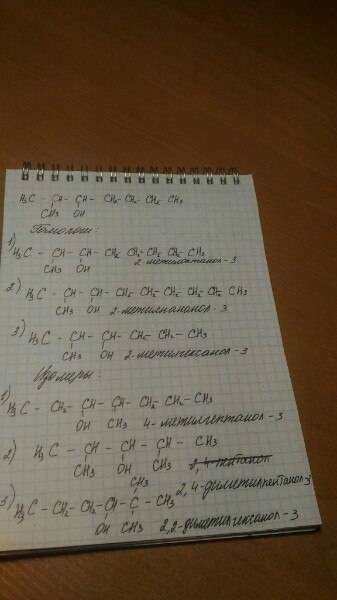 H₃C - CH - CH - CH₂ - CH₂ - CH₂ CH₃
CH₃ OH
Гомологи:
1) H₃C - CH - CH - CH₂ CH₂ - CH₂ CH₂ - CH₃
CH₃ OH 2-метилоктанол-3
2) H₃C - CH - CH - CH₂ - CH₂ - CH₂ CH₂ CH₂ CH₃
CH₃ OH 2-метилнанонол-3
3) H₃C - CH - CH - CH₂ - CH₂ - CH₃
CH₃ OH 2-метилгексанол-3
Изомеры:
1) H₃C - CH₂ - CH - CH - CH₂ - CH₂ - CH₃
OH CH₃ 4-метилгептанол-3
2) H₃C - CH - CH - CH - CH₃
CH₃ OH CH₃
2,4-диметилпентанол-3
CH₃
3) H₃C - CH₂ - CH₂ - CH - C - CH₃
OH CH₃ 2,2-диметилгексанол-3